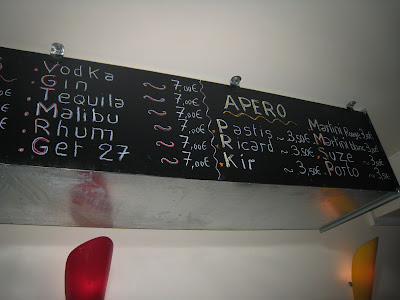 Vodka ~ 7,00€
Gin ~ 7,00€
Tequila ~ 7,00€
Malibu ~ 7,00€
Rhum ~ 7,00€
Get 27 ~ 7,00€
APERO
Pastis ~ 3,50€
Ricard ~ 3,50€
Kir ~ 3,50€
Martini Rouge 3,50€
Martini blanc 3,50€
Suze ~ 3,50€
Porto ~ 3,5€